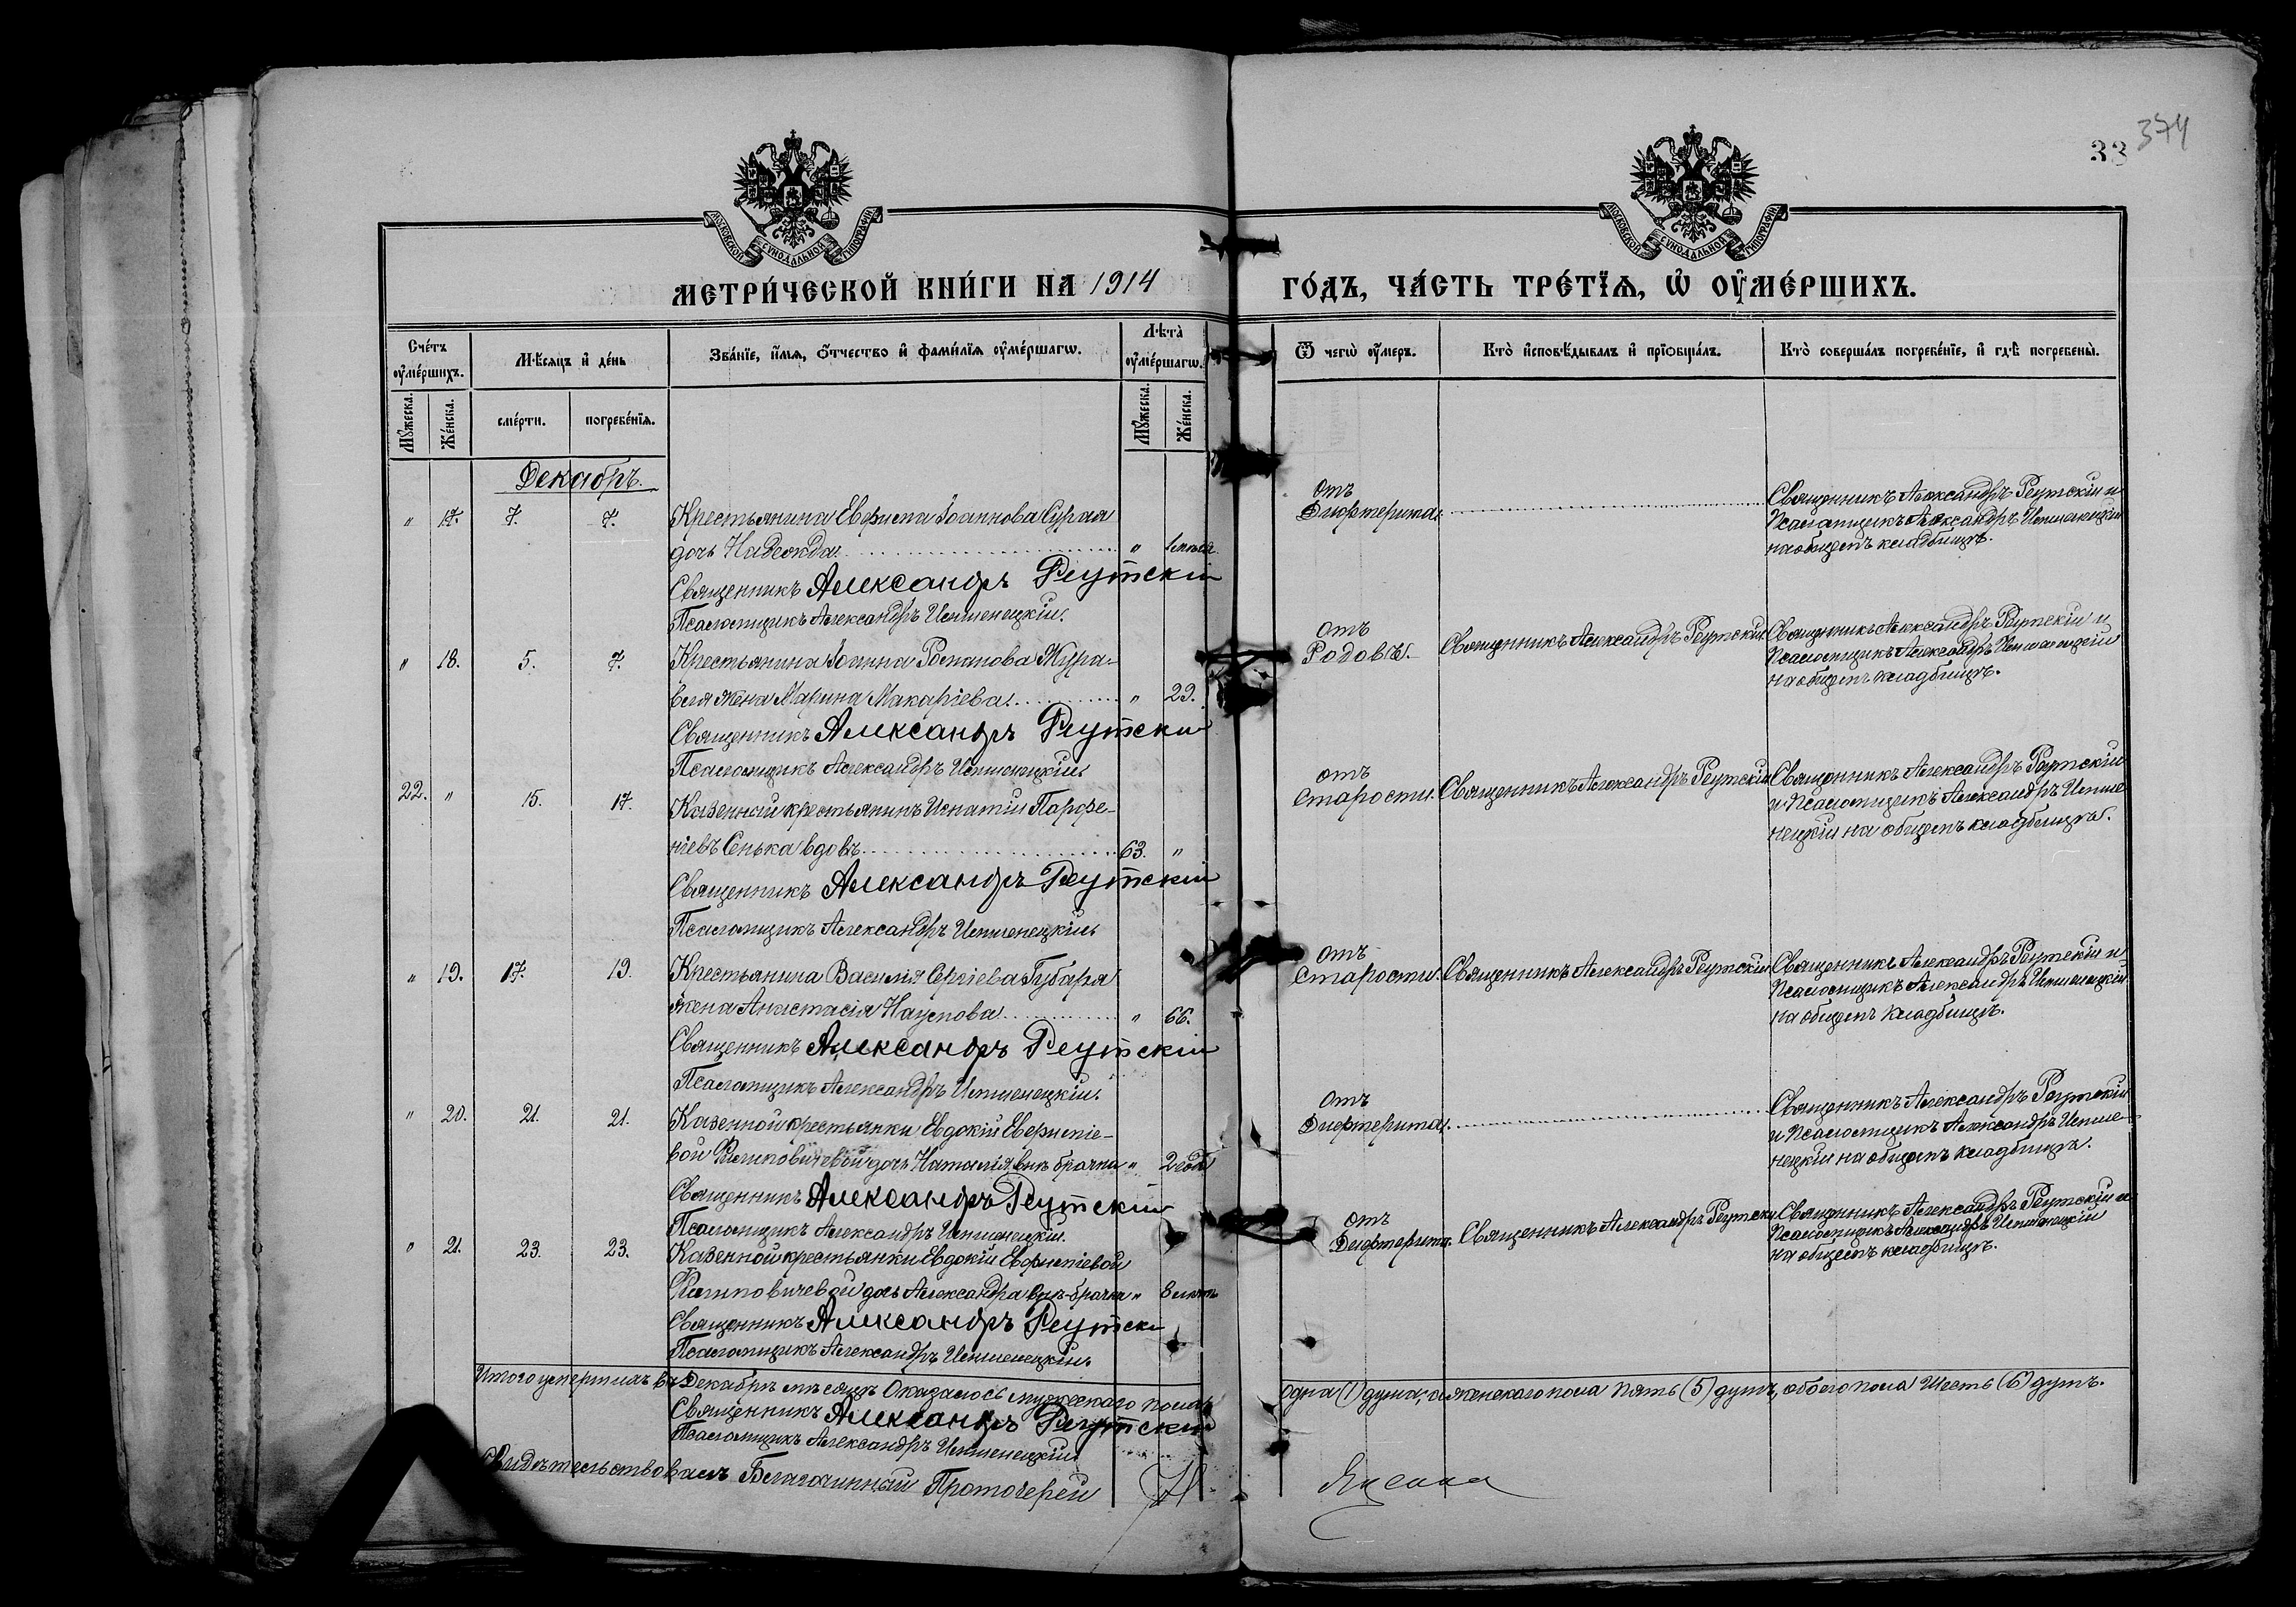 33 374
МОСКОВСКОЙ СѴНОДАЛЬНОЙ ТИПОГРАФІИ
МОСКОВСКОЙ СѴНОДАЛЬНОЙ ТИПОГРАФІИ
МЕТРИ́ЧЕСКОЙ КНИ́ГИ НА 1914 ГО́ДЪ, ЧА́СТЬ ТРЕ́ТЇѦ, Ѡ҆ ОУ҆МЕ́РШИХЪ.
Сче́тъ оу҆ме́ршихъ.
Мꙋ́жеска.
Же́нска.
Мѣ́сѧцъ и҆ де́нь
сме́рти.
погребе́нїѧ.
Зва́нїе, и҆́мѧ, ѻ҆́тчество и҆ фами́лїѧ оу҆ме́ршагѡ.
Лѣ́та оу҆ме́ршагѡ.
Мꙋ́жеска.
Же́нска.
Ѿ чегѡ̀ оу҆́меръ.
Кто̀ и҆сповѣ́дывалъ и҆ прїѻбща́лъ.
Кто̀ соверша́лъ погребе́нїе, и҆ гдѣ̀ погребены̀.
Декабрь.
" 17. 7. 7. Крестьянина Евфимія Іоаннова
дочь Надежда " 1
Священникъ Александръ Реутскій
Псаломщикъ Александръ
отъ
Дифтерита.
Священникъ Александръ Реутскій и
Псаломщикъ Александръ
на общемъ кладбищѣ.
" 18. 5. 7. Крестьянина Іоанна Романова Жура-
вля жена Марина Макаріева. " 29.
Священникъ Александръ Реутскій
Псаломщикъ Александръ
отъ
Родовъ.
Священникъ Александръ Реутскій
Священникъ Александръ Реутскій и
Псаломщикъ Александръ
на общемъ кладбищѣ.
22. " 15. 17. Казенный крестьянинъ Игнатій Парфе-
ніевъ Сенька вдовъ 63. "
Священникъ Александръ Реутскій
Псаломщикъ Александръ
отъ
Старости.
Священникъ Александръ Реутскій
Священникъ Александръ Реутскій
и Псаломщикъ Александръ
на общемъ кладбищѣ.
" 19. 17. 19. Крестьянина Василія Сергіева Губаря
жена Анастасія Наумова " 66.
Священникъ Александръ Реутскій
Псаломщикъ Александръ
отъ
Старости.
Священникъ Александръ Реутскій
Священникъ Александръ Реутскій и
Псаломщикъ Александръ
на общемъ кладбищѣ.
" 20. 21. 21. Казенной крестьянки Евдокіи Евфиміе-
вой Филиповичевой дочь Наталія внѣ брачна " 2 года
Священникъ Александръ Реутскій
Псаломщикъ Александръ
отъ
Дифтерита.
Священникъ Александръ Реутскій
и Псаломщикъ Александръ
на общемъ кладбищѣ.
" 21. 23. 23. Казенной крестьянки Евдокіи Евфиміевой
Филиповичевой дочь Александра внѣ-брачна " 8 лѣтъ
Священникъ Александръ Реутскій
Псаломщикъ Александръ
отъ
Дифтерита.
Священникъ Александръ Реутскій
Священникъ Александръ Реутскій и
Псаломщикъ Александръ
на общемъ кладбищѣ.
Итого умершихъ въ Декабрѣ мѣсяцѣ Оказалось мужескаго пола одна (1) душа, а женскаго пола пять (5) душъ, обоего пола шесть (6) душъ.
Священникъ Александръ Реутскій
Псаломщикъ Александръ
Свидѣтельствовалъ Благочинный Протоіерей